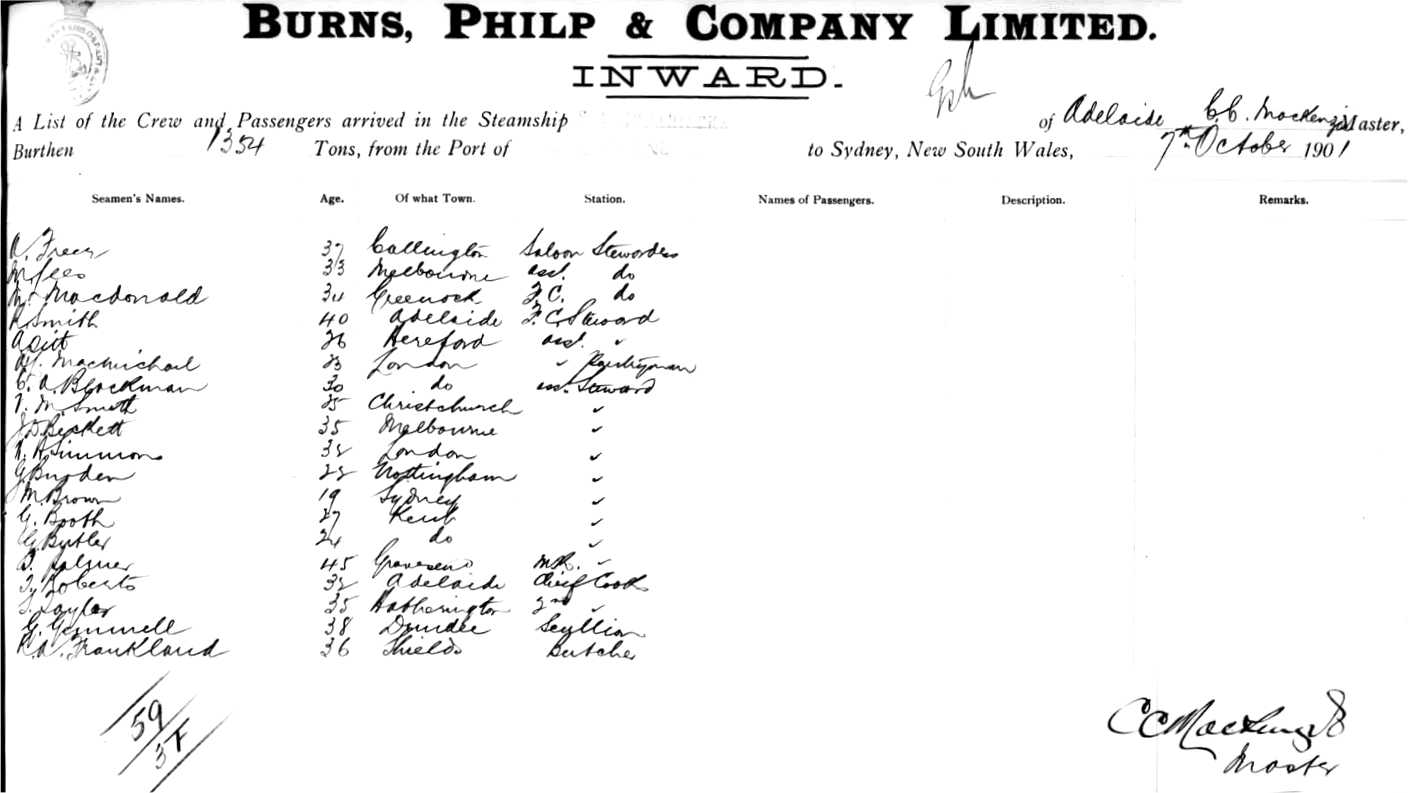 BURNS, PHILP & COMPANY LIMITED.
INWARD.
A List of the Crew and Passengers arrived in the Steamship of Adelaide C.C. Mackenzie Master,
Burthen 1354 Tons, from the Port of to Sydney, New South Wales, 7th October 1901
Seamen's Names. Age. Of what Town. Station. Names of Passengers. Description. Remarks.
37 Callington Saloon Stewardess
M. Lees 33 Melbourne asst. do
M. Macdonald Greenock F.C. do
R Smith 40 Adelaide F.C. Steward
26 Hereford asst. "
MacMichael 23 London " Pantryman
C. A. Blackman 30 do asst. Steward
M. Smith 25 Christchurch "
J D Beckett 35 Melbourne "
H Simmons London "
G Burden Nottingham "
M. Brown 19 Sydney "
G. Booth 27 Kent "
G Butler 24 do "
B. Palmer 45 Gravesend "
Roberts Adelaide Chief Cook
Taylor 35 2nd "
G. Gemmell 38 Dundee Scullion
Frankland 36 Shields Butcher
59
C C Mackenzie
Master